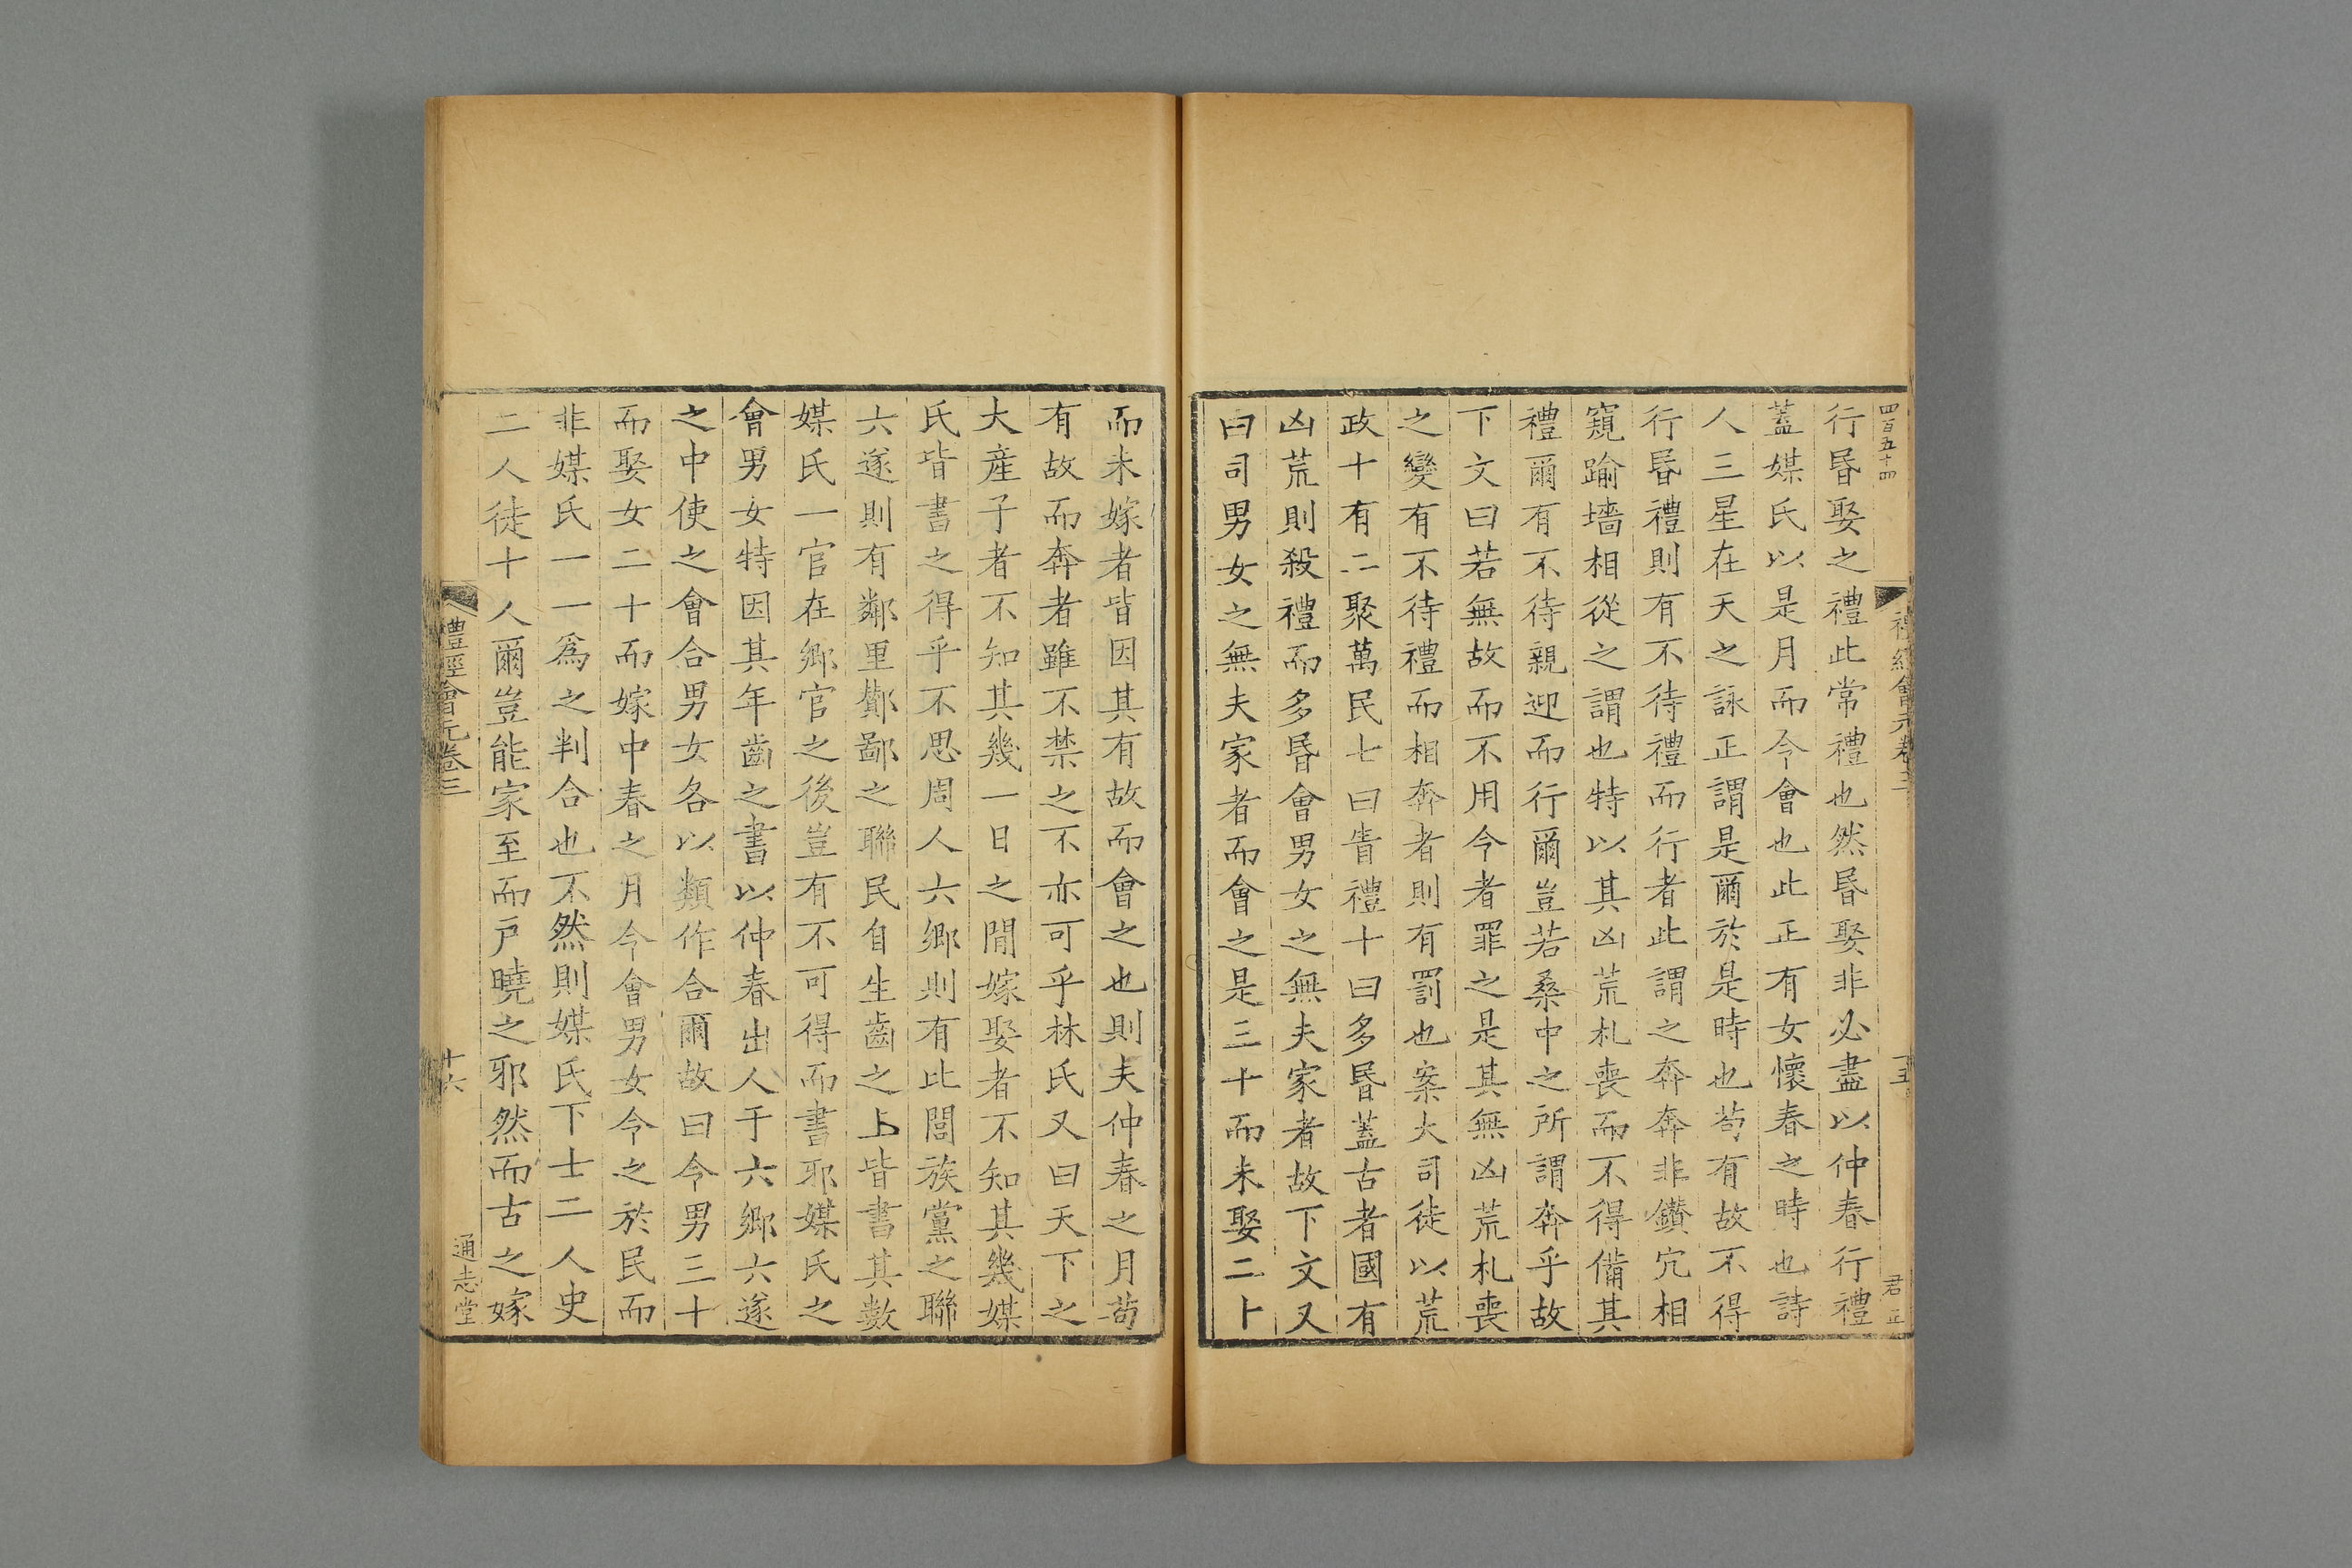 四百五十四
禮經會元卷三
君正
行昬娶之禮此常禮也然昬娶非必盡以仲春行禮
蓋媒氏以是月而令會也此正有女懷春之時也詩
人三星在天之詠正謂是爾於是時也苟有故不得
行昬禮則有不待禮而行者此謂之奔奔非鑽穴相
窺踰墻相從之謂也特以其凶荒札喪而不得備其
禮爾有不待親迎而行爾豈若桑中之所謂奔乎故
下文曰若無故而不用令者罪之是其無凶荒札喪
之變有不待禮而相奔者則有罰也案大司徒以荒
政十有二聚萬民七曰眚禮十曰多昬蓋古者國有
凶荒則殺禮而多昬會男女之無夫家者故下文又
曰司男女之無夫家者而會之是三十而未娶二十
而未嫁者皆因其有故而會之也則夫仲春之月苟
有故而奔者雖不禁之不亦可乎林氏又曰天下之
大産子者不知其幾一日之閒嫁娶者不知其幾媒
氏皆書之得乎不思周人六鄉則有比閭族黨之聯
六遂則有鄰里酇鄙之聯民自生齒之上皆書其數
媒氏一官在鄉官之後豈有不可得而書邪媒氏之
會男女特因其年齒之書以仲春出人于六鄉六遂
之中使之會合男女各以類作合爾故曰令男三十
而娶女二十而嫁中春之月令會男女令之於民而
非媒氏一一爲之判合也不然則媒氏下士二人史
二人徒十人爾豈能家至而戸曉之邪然而古之嫁
禮經會元卷三
十六
通志堂